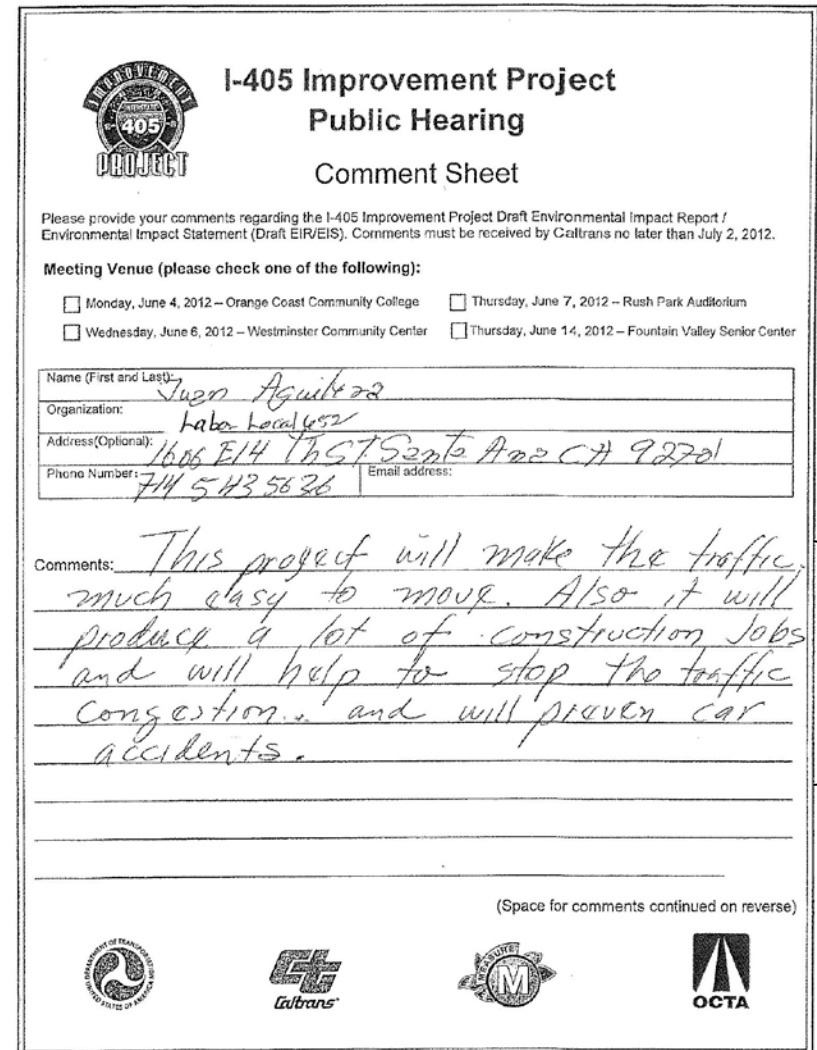 IMPROVEMENT
INTERSTATE
405
PROJECT
I-405 Improvement Project
Public Hearing
Comment Sheet
Please provide your comments regarding the I-405 Improvement Project Draft Environmental Impact Report /
Environmental Impact Statement (Draft EIR/EIS). Comments must be received by Caltrans no later than July 2, 2012.
Meeting Venue (please check one of the following):
Monday, June 4, 2012 – Orange Coast Community College
Thursday, June 7, 2012 – Rush Park Auditorium
Wednesday, June 6, 2012 – Westminster Community Center
Thursday, June 14, 2012 – Fountain Valley Senior Center
Name (First and Last): Juan Aguilera
Organization: Labor Local 652
Address(Optional): 1606 E14 Th ST Santa Ana CA 92701
Phone Number: 714 543 5636 Email address:
Comments: This project will make the traffic
much easy to move. Also it will
produce a lot of construction Jobs
and will help to stop the traffic
congestion.. and will preven car
accidents.
(Space for comments continued on reverse)
DEPARTMENT OF TRANSPORTATION
UNITED STATES OF AMERICA
Caltrans
MEASURE
M
OCTA